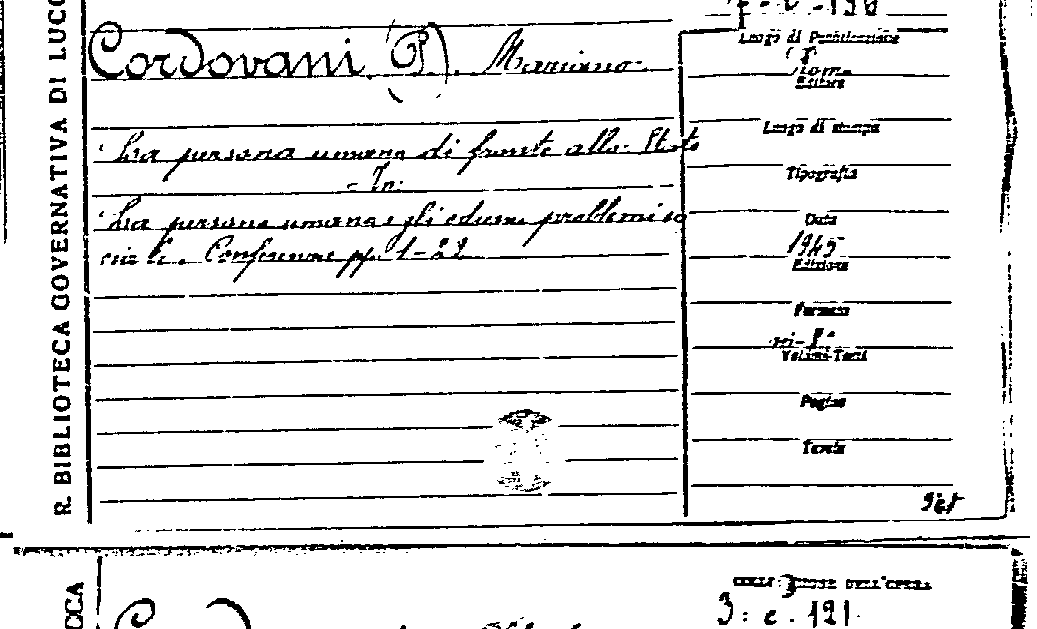 R. BIBLIOTECA GOVERNATIVA DI LUCC
Cordovani (P.) Mariano
La persona umana di fronte allo Stato
- In:
La persona umana e gli odierni problemi so
ciali. Conferenze pp. 1-22
Luogo di Pubblicazione
Roma
Editore
Luogo di stampa
Tipografia
Data
1945
Edizione
Formato
in-8°
Volumi-Tomi
Pagine
Tavole
CCA
COLLOCAZIONE DELL'OPERA
3. c. 121